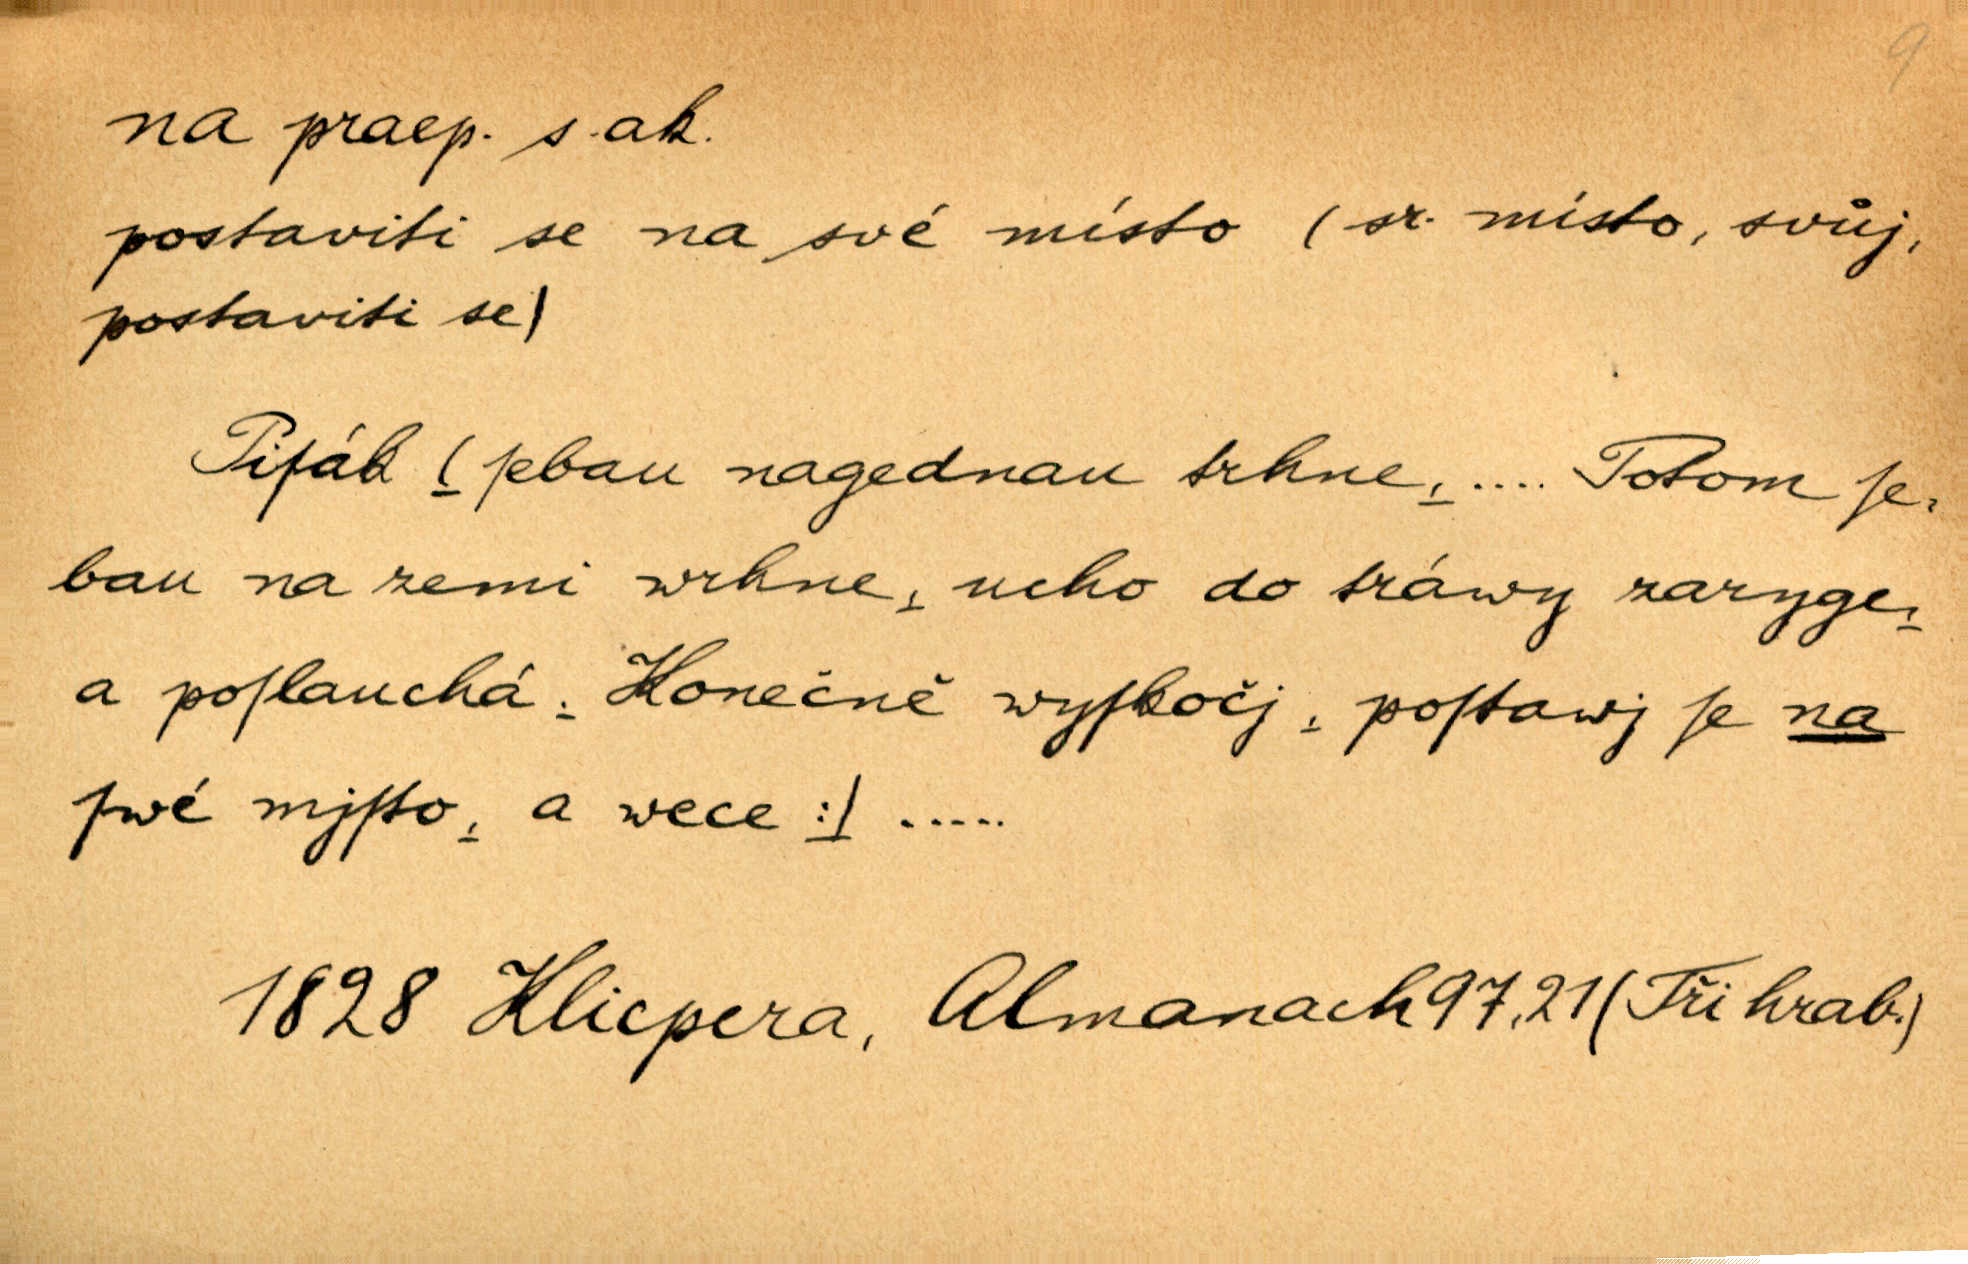 9
na praep. s. ak.
postaviti se na své místo (sr. místo, svůj,
postaviti se)
Piſák (ſebau nagednau trhne, .... Potom ſe-
bau na zemi wrhne, ucho do tráwy zaryge,
a poſlauchá. Konečně wyſkočj, poſtawj ſe na
ſwé mjſto, a wece :) .....
1828 Klicpera, Almanach 97,21 (Tři hrab.)